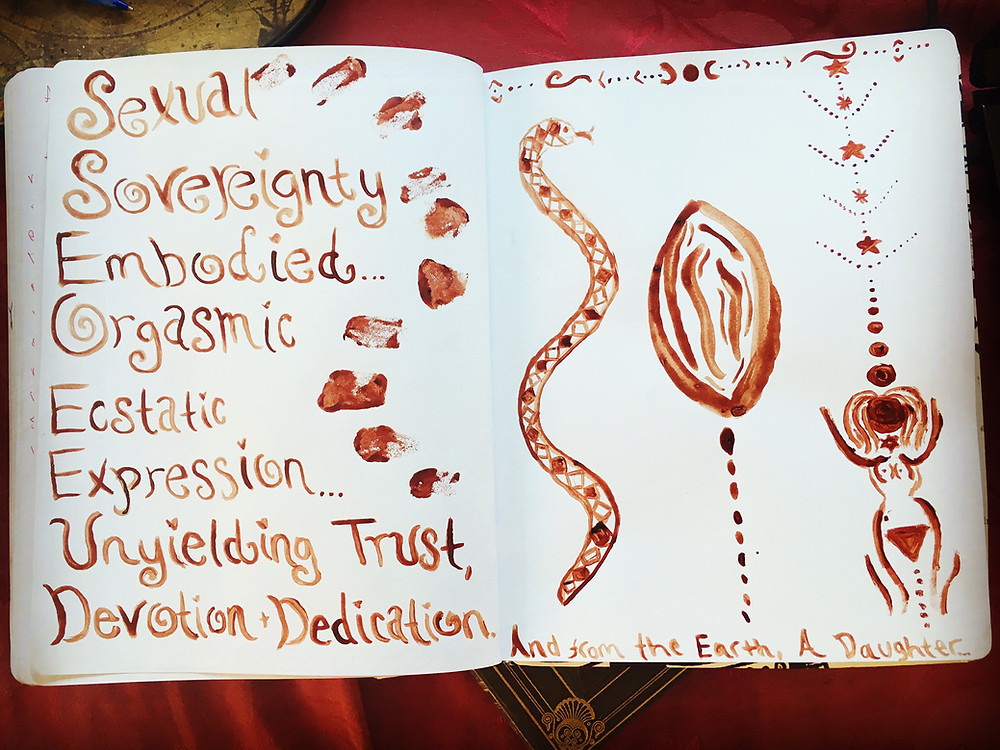 Sexual
Sovereignty
Embodied...
Orgasmic
Ecstatic
Expression...
Unyielding Trust,
Devotion + Dedication.
And from the Earth, A Daughter...